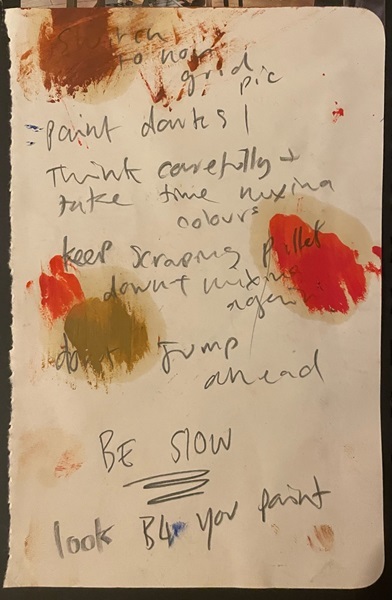 Switch
to non
grid
pic
paint darks |
Think carefully +
take time mixing
colours
keep scraping pallet
down + mixing
again
don't Jump
ahead
BE SLOW
look B4 you paint